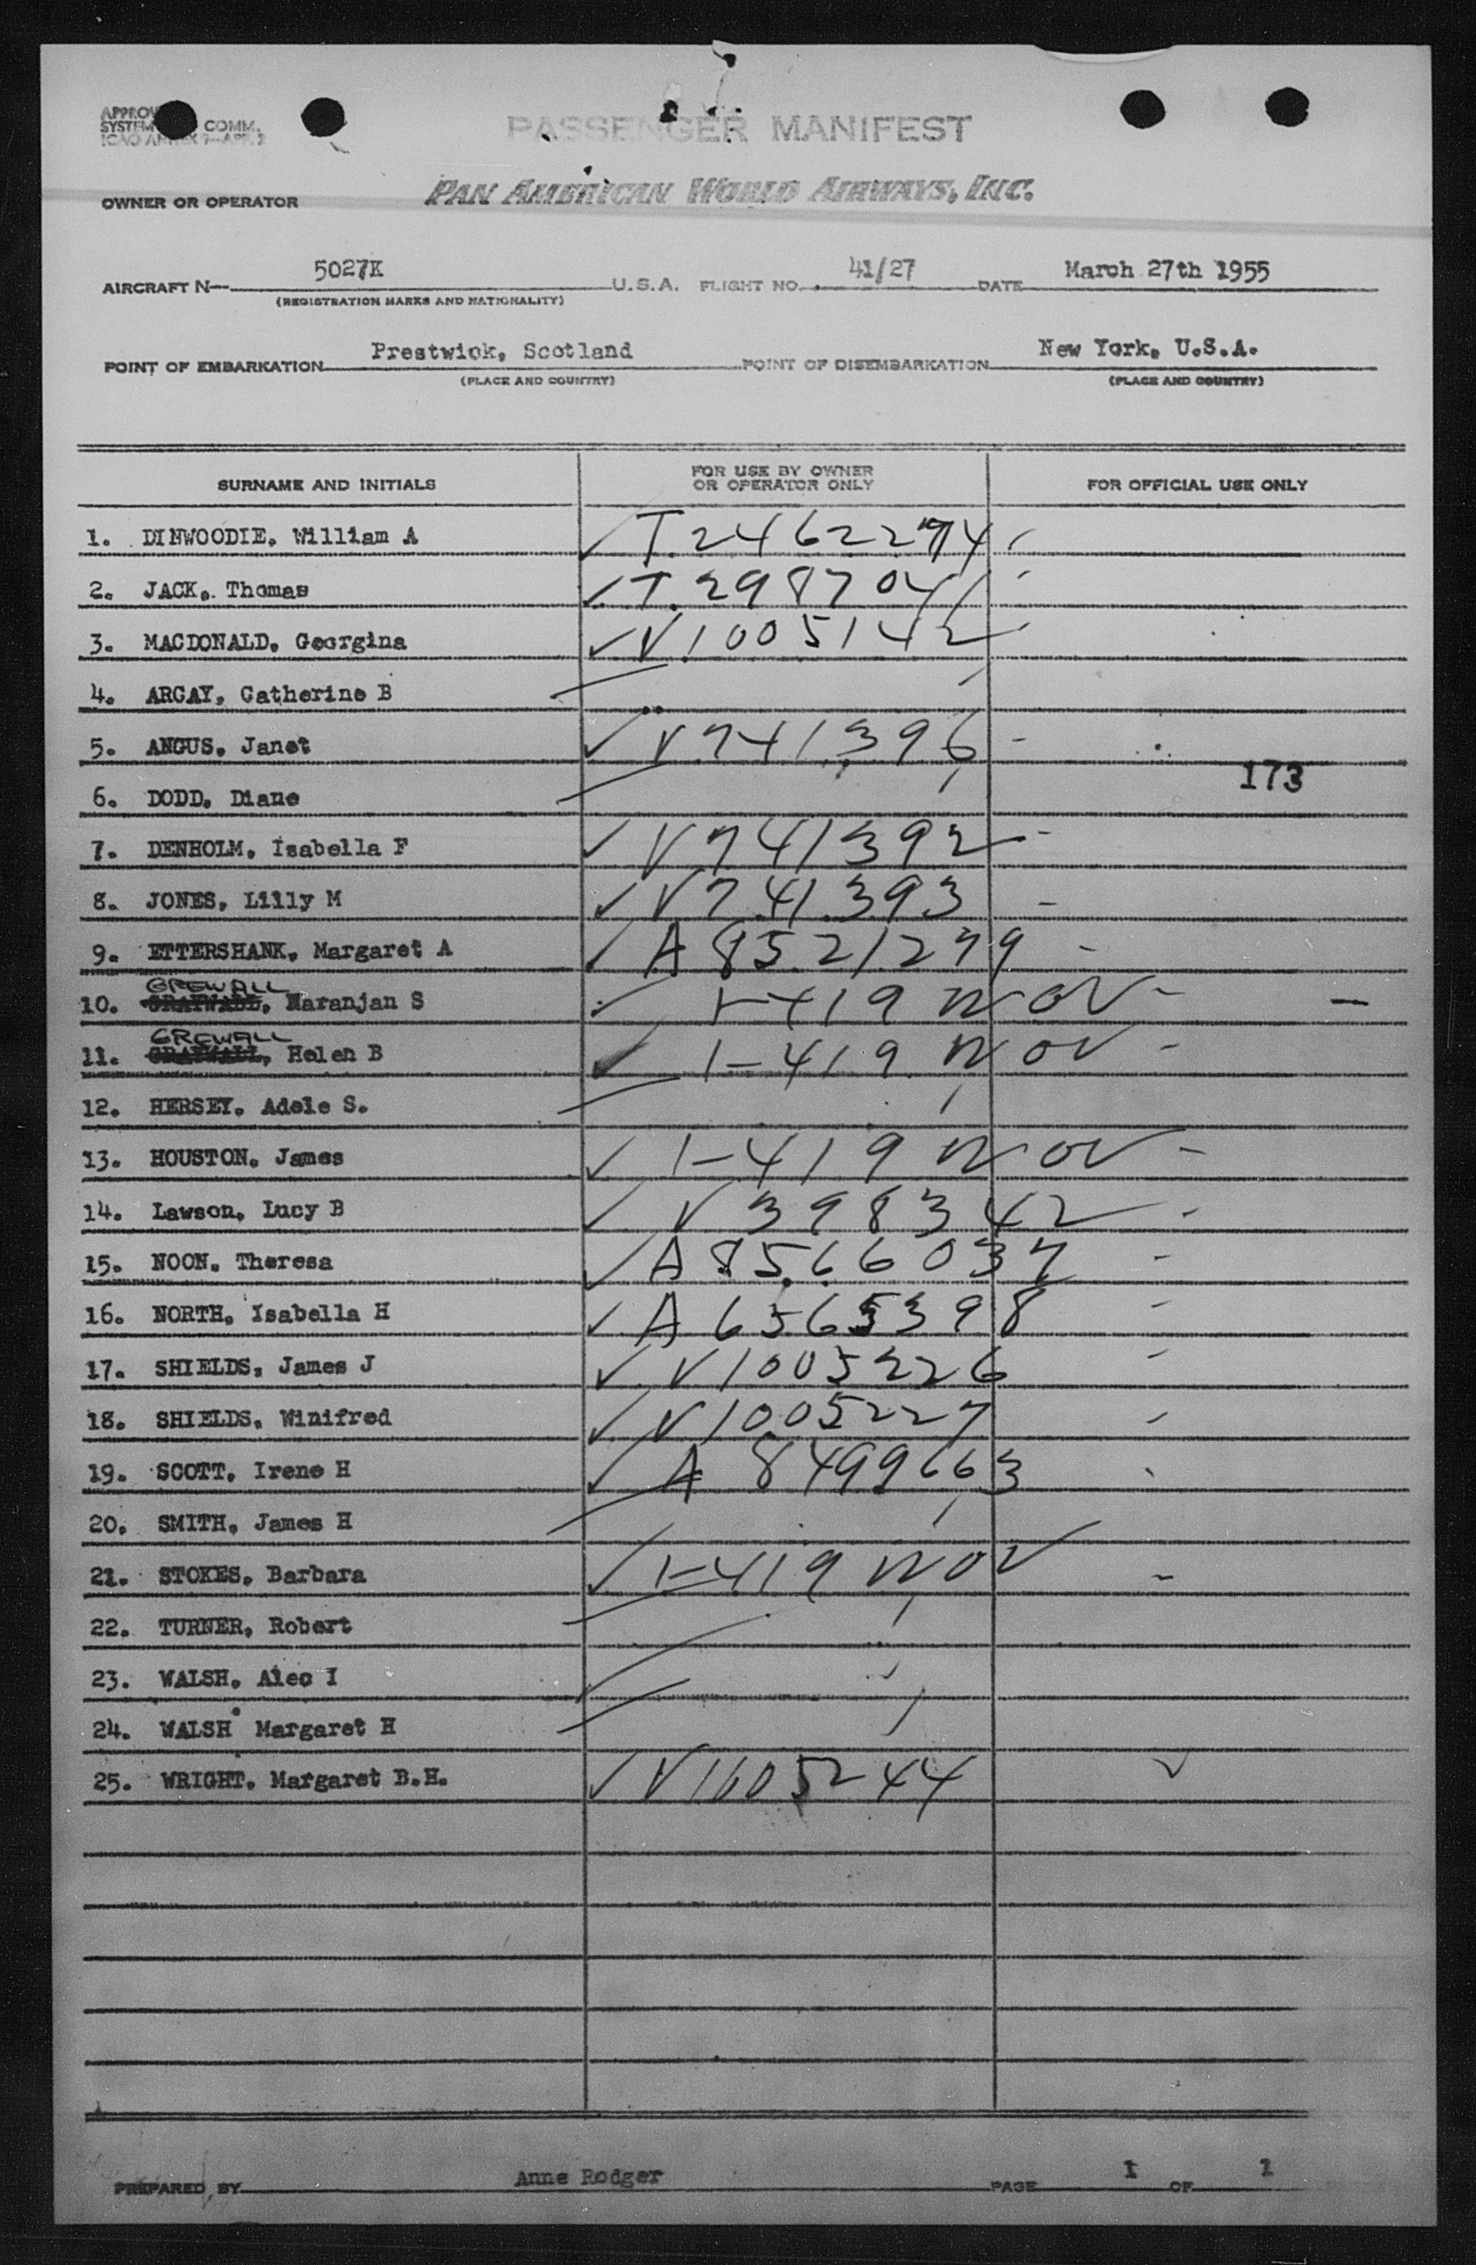 PASSENGER MANIFEST
SYSTEM COMM.
OWNER OR OPERATOR PAN AMERICAN WORLD AIRWAYS, INC.
AIRCRAFT N— 5027K U.S.A. FLIGHT NO. 41/27 DATE March 27th 1955
(REGISTRATION MARKS AND NATIONALITY)
POINT OF EMBARKATION Prestwick, Scotland POINT OF DISEMBARKATION New York, U.S.A.
(PLACE AND COUNTRY) (PLACE AND COUNTRY)
SURNAME AND INITIALS FOR USE BY OWNER OR OPERATOR ONLY FOR OFFICIAL USE ONLY
1. DINWOODIE, William A ✓ T.2462274
2. JACK, Thomas ✓ T.2987041
3. MACDONALD, Georgina ✓ V1005142
4. ARGAY, Catherine B
5. ANGUS, Janet ✓ V741396
173
6. DODD, Diane
7. DENHOLM, Isabella F ✓ V741392 -
8. JONES, Lilly M ✓ V741393 -
9. ETTERSHANK, Margaret A ✓ A8521279 -
10. GREWALL, Naranjan S ✓ 1-419 NOV - -
11. GREWALL, Helen B ✓ 1-419 NOV -
12. HERSEY, Adele S.
13. HOUSTON, James ✓ 1-419 NOV -
14. Lawson, Lucy B ✓ V398342 -
15. NOON, Theresa ✓ A8566037 -
16. NORTH, Isabella H ✓ A6565398 -
17. SHIELDS, James J ✓ V1005226 -
18. SHIELDS, Winifred ✓ V1005227 -
19. SCOTT, Irene H ✓ A8499663
20. SMITH, James H
21. STOKES, Barbara ✓ 1-419 NOV -
22. TURNER, Robert
23. WALSH, Alec I
24. WALSH Margaret H
25. WRIGHT, Margaret B.H. ✓ V1005244 ✓
PREPARED BY Anne Rodger PAGE 1 OF 1